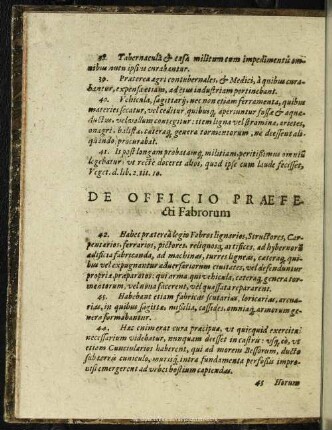 38. Tabernacula & casæ militum cum impedimentis omnibus
nutu ipsius curabantur.
39. Præterea ægri contubernales, & Medici, à quibus curabantur,
expensa etiam, ad eius industriam pertinebant.
40. Vehicula, sagittarij, nec non etiam ferramenta, quibus
materies secatur, vel cæditur quibusq; aperiuntur fossæ & aquæductus,
vel vallum contegitur: item ligna vel stramina, arietes,
onagri, balistæ, cæteraq; genera tormentorum, ne deessent aliquando,
procurabat.
41. Is post longam probatamq; militiam, peritissimus omniũ
legebatur: vt rectè doceret alios, quod ipse cum laude fecisset,
Veget. d. lib. 2. tit. 10.
DE OFFICIO PRAEFE-
cti Fabrorum
42. Habet præterea legio Fabros lignarios, Structores, Carpentarios,
ferrarios, pictores, reliquosq; artifices, ad hybernorũ
ædificia fabricanda, ad machinas, turres ligneas, cæteraq; quibus
vel expugnantur aduersariorum ciuitates, vel defenduntur
propriæ, præparatos: qui arma qui vehicula, cæteraq; genera tormentorum,
vel noua facerent, vel quassata repararent.
43. Habebant etiam fabricas scutarias, loricarias, arcuarias,
in quibus sagittæ, missilia, cassides, omniaq; armorum genera
formabantur.
44. Hæc enim erat cura præcipua, vt quicquid exercitui
necessarium videbatur, nunquam deesset in castris: vsq; eò, vt
etiam Cunicularios haberent, qui ad morem Bessorum, ducto
sub terris cuniculo, murisq; intra fundamenta perfossis improuisi
emergerent ad vrbes hostium capiendas.
45 Horum